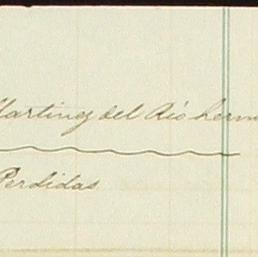 Martinez del Rio herm
Perdidas